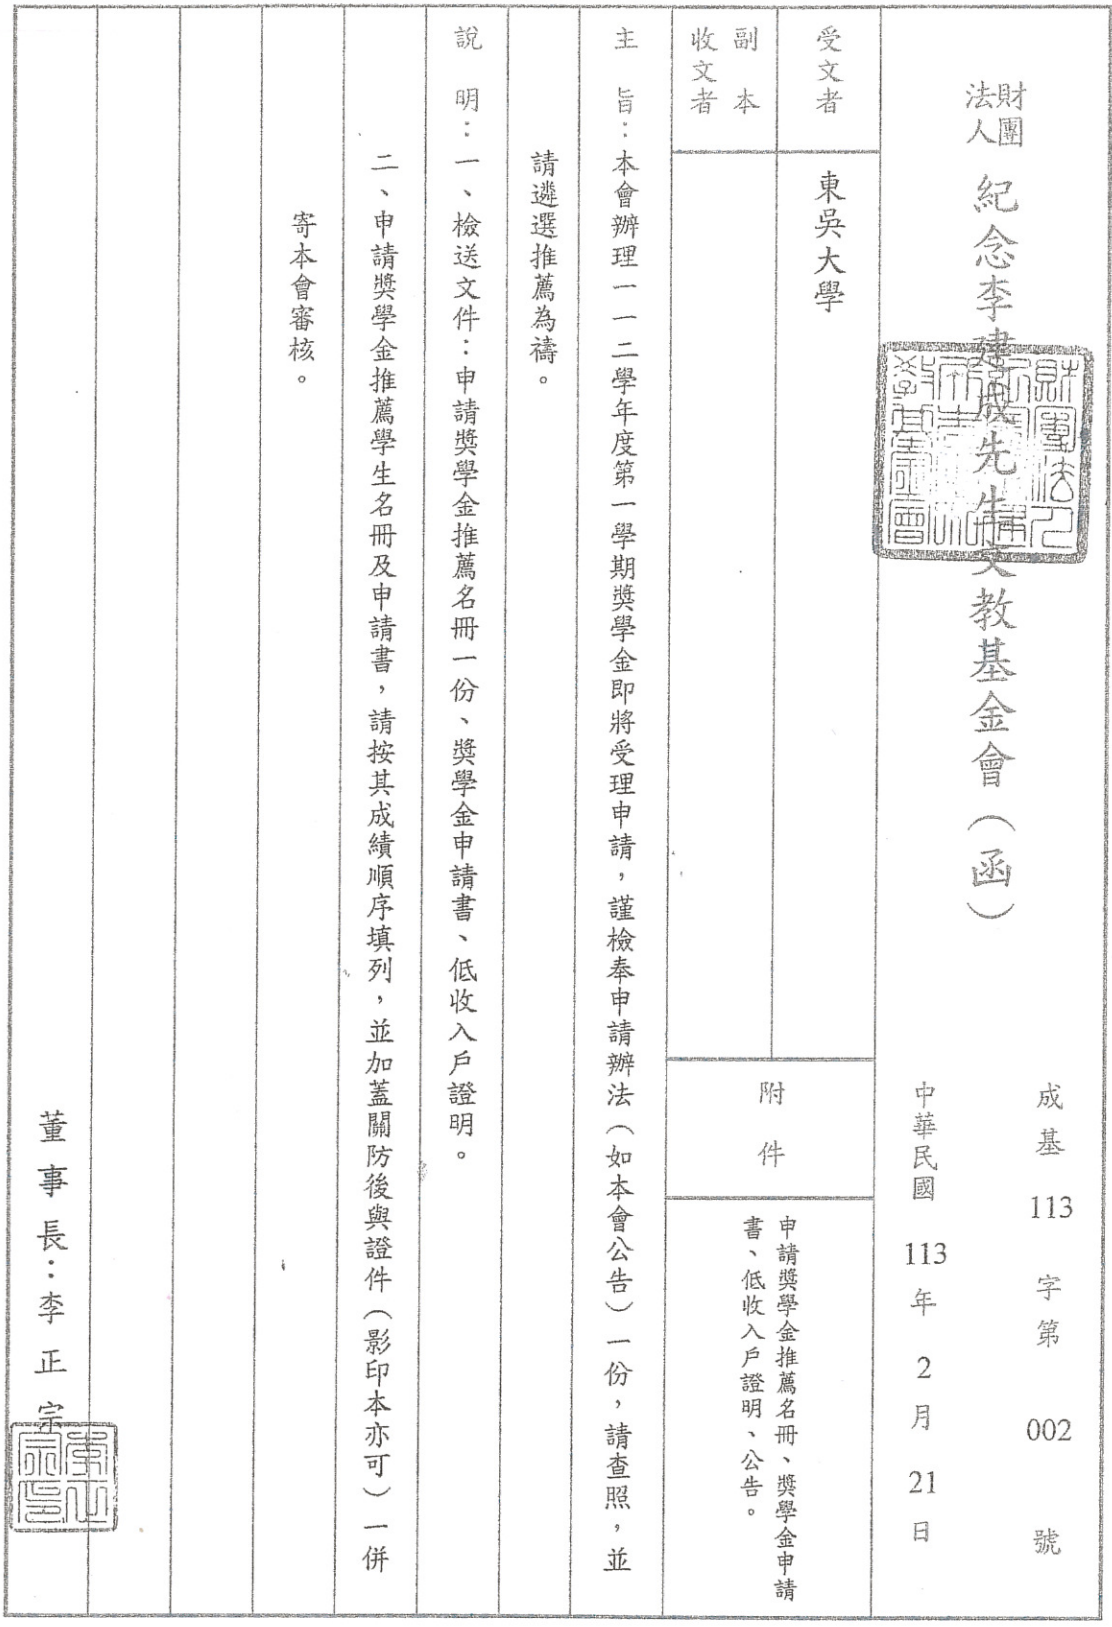 財團
法人
紀念李建成先生文教基金會（函）
成基 113 字第 002 號
中華民國 113 年 2 月 21 日
受文者
東吳大學
副本
收文者
附件
申請獎學金推薦名冊、獎學金申請
書、低收入戶證明、公告。
主旨：本會辦理一一二學年度第一學期獎學金即將受理申請，謹檢奉申請辦法（如本會公告）一份，請查照，並
請遴選推薦為禱。
說明：一、檢送文件：申請獎學金推薦名冊一份、獎學金申請書、低收入戶證明。
二、申請獎學金推薦學生名冊及申請書，請按其成績順序填列，並加蓋關防後與證件（影印本亦可）一併
寄本會審核。
董事長：李正宗